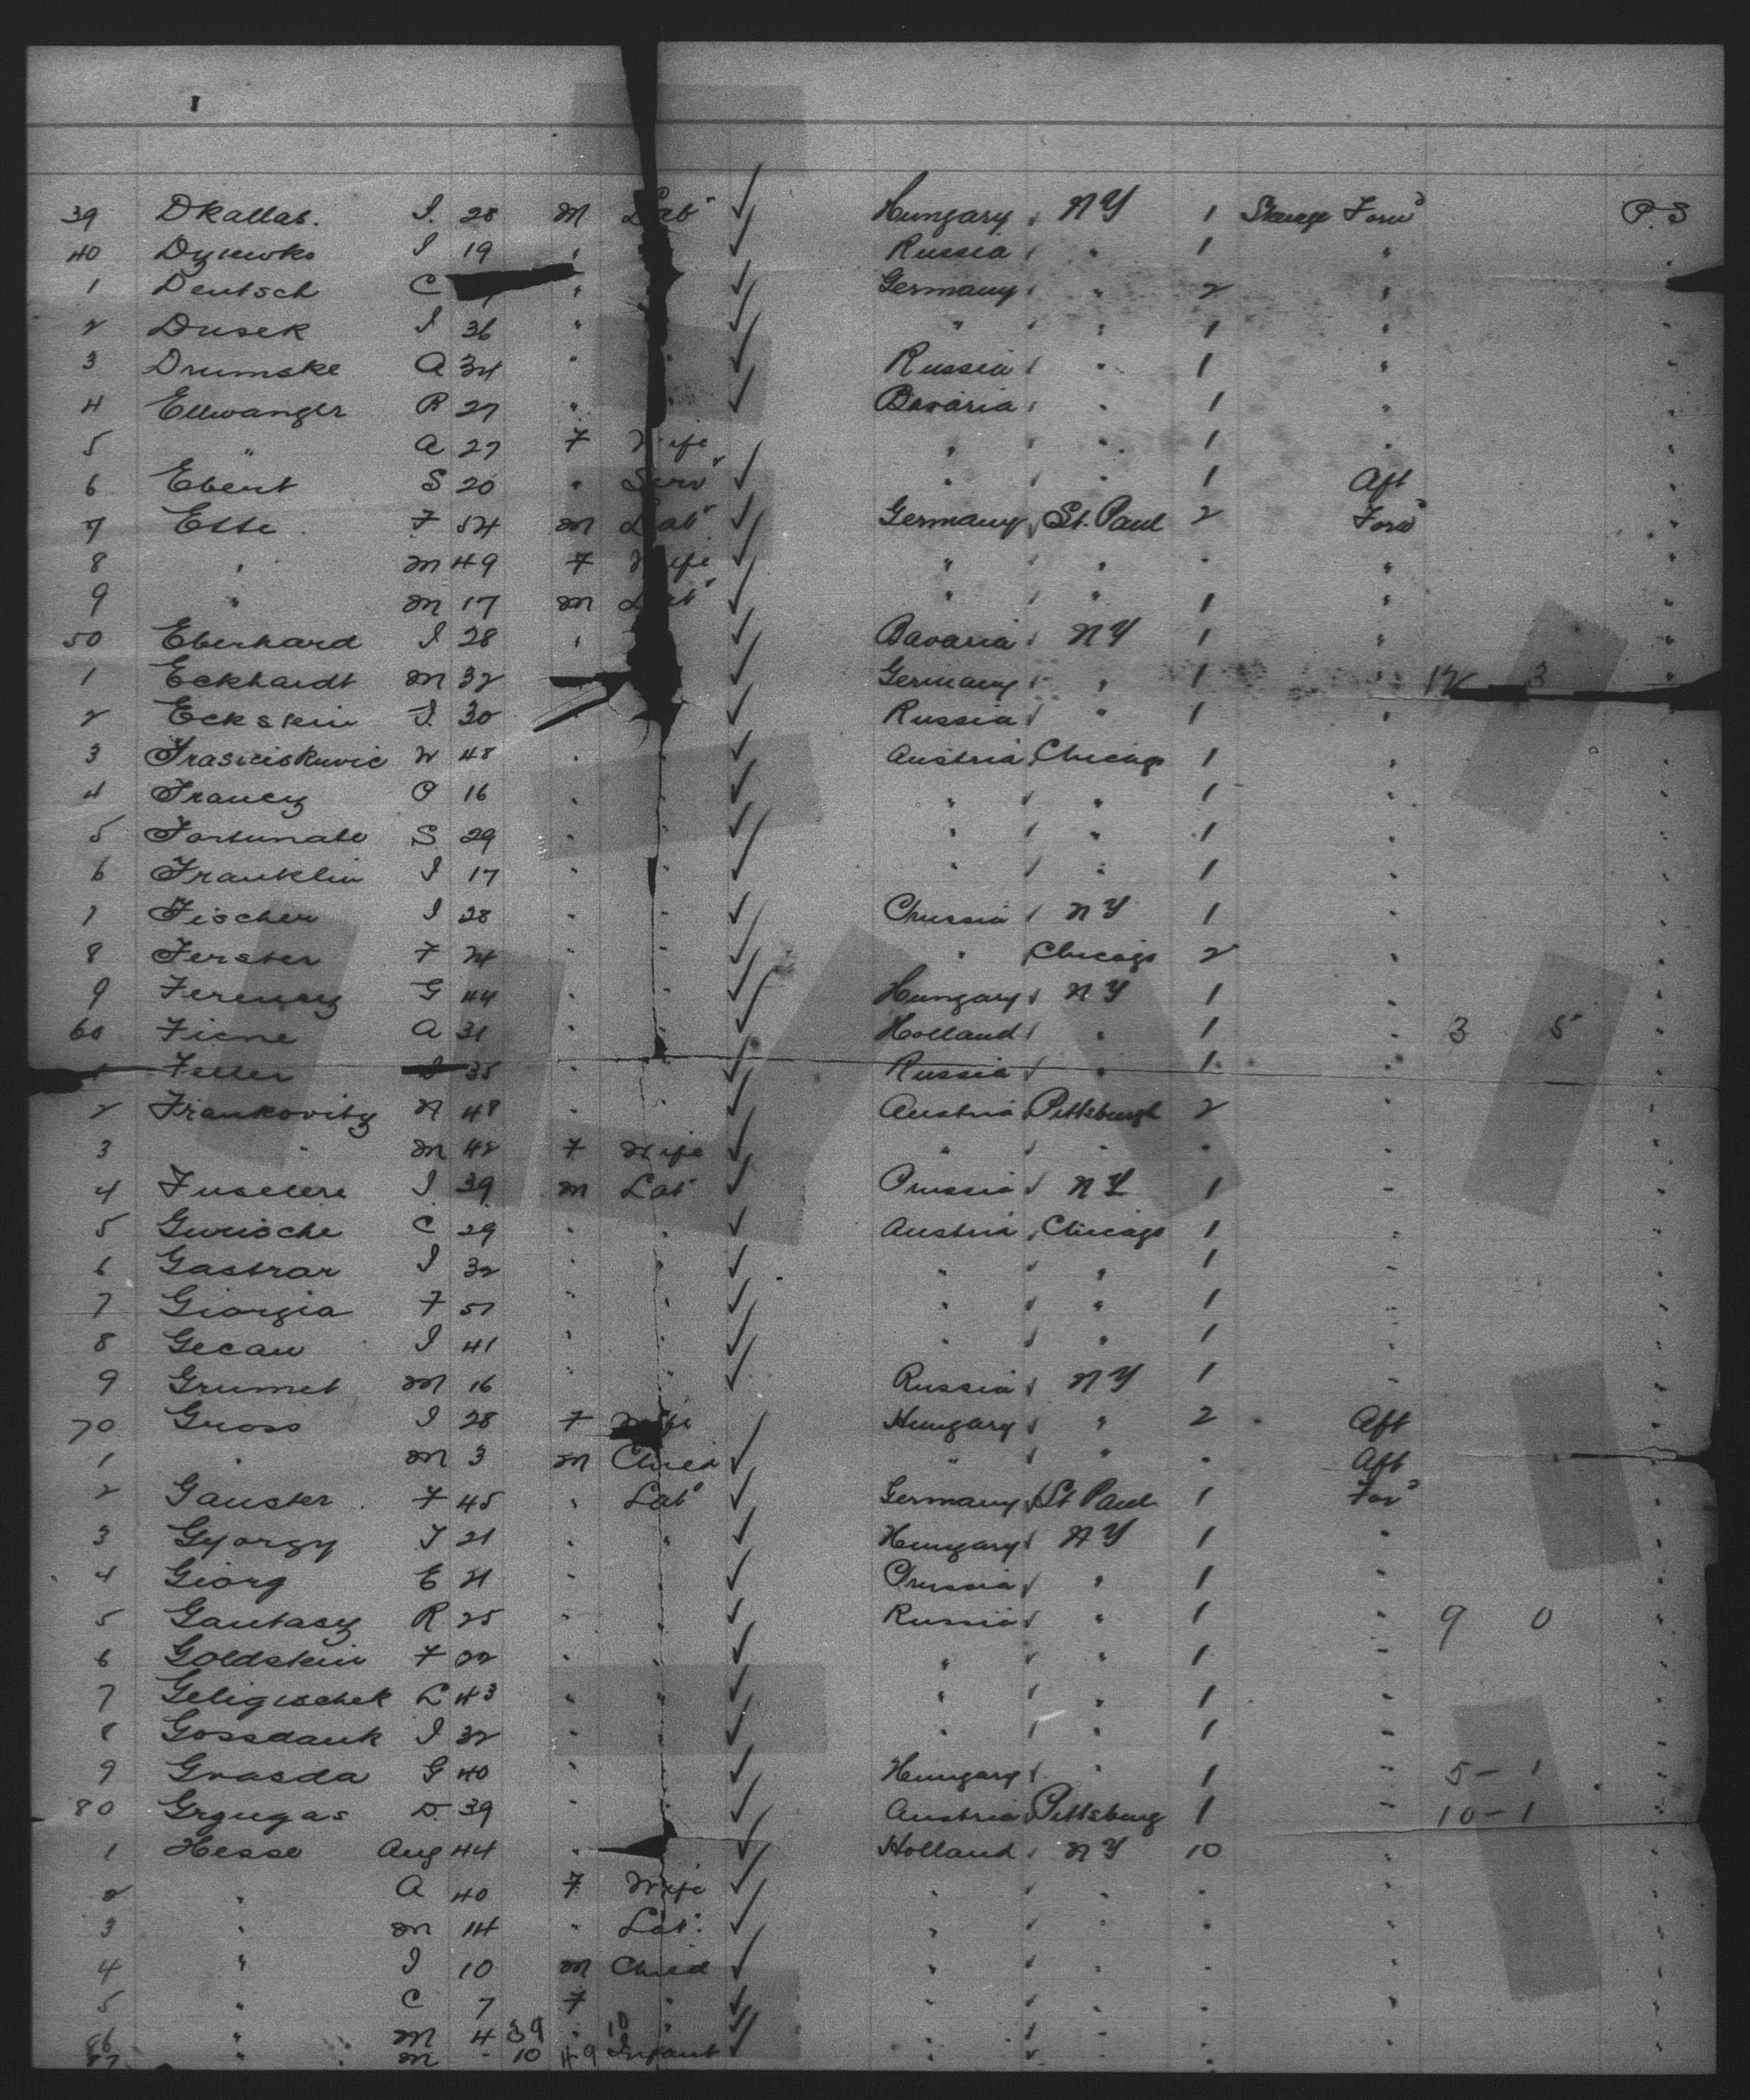 I
39 Dkallas. I. 28 M Lab Hungary NY 1 Steerage Forw P.S
40 Dyiewko I 19 " Russia " 1 "
1 Deutsch C " Germany " 2 "
2 Dusek I 36 " " " 1 "
3 Drumske A 34 " " Russia " 1 "
4 Ellwanger R 27 " " Bavaria " 1 "
5 " A 27 F Wife " " 1 "
6 Ebert S 20 " Serv " " 1 Aft
7 Ette F 54 M Lab Germany St. Paul 2 Forw
8 " M 49 F Wife " " " "
9 " M 17 M Lab " " 1 "
50 Eberhard I 28 " Bavaria NY 1 "
1 Eckhardt M 32 Germany " 1 " 12 3
2 Eckstein I. 30 " " Russia " 1 "
3 48 " " Austria Chicago 1 "
4 Francy P 16 " " " " 1 "
5 Fortunate S 29 " " " " 1 "
6 Franklin I 17 " " " " 1 "
7 Fischer I 28 " " Prussia NY 1 "
8 Ferster F 24 " " " Chicago 2 "
9 Ferency G 44 " " Hungary NY 1 "
60 Ficne A 31 " " Holland " 1 " 3 5
Feller I 35 " " Russia " 1 "
2 Frankovitz N 48 " " Austria Pittsburgh 2 "
3 " M 42 F Wife " " " "
4 I 39 M Lab Prussia NY 1 "
5 Gurische C 29 " " Austria Chicago 1 "
6 Gastrar I 32 " " " " 1 "
7 Giorgia F 51 " " " " 1 "
8 Gecan I 41 " " " " 1 "
9 Grumet M 16 " " Russia NY 1 "
70 Gross I 28 F Wife Hungary " 2 Aft
1 " M 3 M Child " " " Aft
2 Gauster F 45 " Lab Germany St Paul 1 For
3 Gyorgy I 21 " " Hungary NY 1 "
4 Giorg E 21 " " Prussia " 1 "
5 Gantasy R 25 " " Russia " 1 " 9 0
6 Goldstein F 22 " " " " 1 "
7 Geligischek L 43 " " " " 1 "
8 Gossdank I 32 " " " " 1 "
9 Grasda G 40 " " Hungary " 1 " 5 - 1
80 Grgugas D. 39 " " Austria Pittsburg 1 " 10 - 1
1 Hesse Aug 44 " Holland NY 10 "
2 " A 40 F Wife " " " "
3 " M 14 " Lab. " " " "
4 " I 10 M Child " " " "
5 " C 7 F " " " " "
86 " M 4 39 " 10 " " " " "
87 " M - 10 49 Infant " " " "